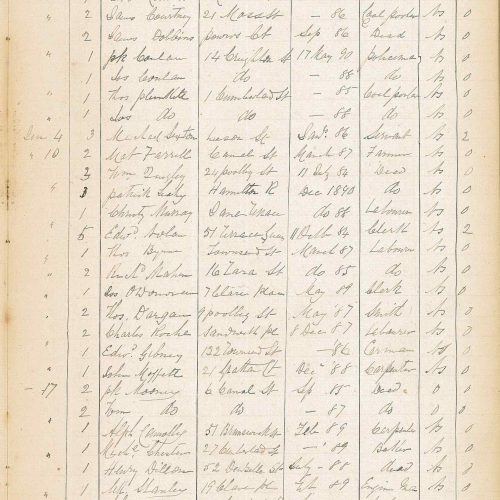 " 2 Jams Courtney 21 Moss St — 86 Coal porter No 0
2 James Dobbins powers Ct Sep 86 Dead No 0
" 1 pk Conlan 14 Creighton St 17 May 90 policeman No 0
1 Jos Conlan do — 88 do No 0
" 1 Thos plunkett 1 Cumberland St — 85 Coal porter No 0
" 1 Jos do do — 88 do No 0
Dec 4 3 Michael Sexton Leeson St Jany 86 Servant No 2
" 10 2 Mat Farrell Canal St March 87 Farmer No 0
3 Wm 24 poolbeg St 11 July 84 Dead No 0
" 3 patrick Hamilton R Dec 1890 do No 0
1 Christy Murray do 86 Labourer No 0
" 5 Edwd Nolan 51 84 Clerk No 2
" 1 Thos Byrne Townsend St March 87 Labourer No 0
" 2 16 Tara St do 85 do No 0
" 1 Jos O'Donovan 7 Clare place May 89 Clerk No 0
" 2 Thos Dargan 9 poolbeg St May 87 Smith No 0
" 2 Charles Roche Sandwith pl 8 Dec 87 Labourer No 0
" 1 Edwd 132 Townsend St — 86 No 0
" 1 John Moffett 21 Ct Decr 88 Carpenter No 0
— 17 2 pk Mooney 6 Canal St Sep 85 Dead 0 0
2 Wm do do — 87 do 0 0
" 1 Alph Connolly 51 Brunswick St Feb 89 Carpenter No 0
" 1 Chester 27 Cumberland St — 89 Baker No 0
" 1 Henry Dillon 52 Denzille St July — 88 dead No 0
" 1 Stanley 19 Clare pl Feb 89 Engine man No 0